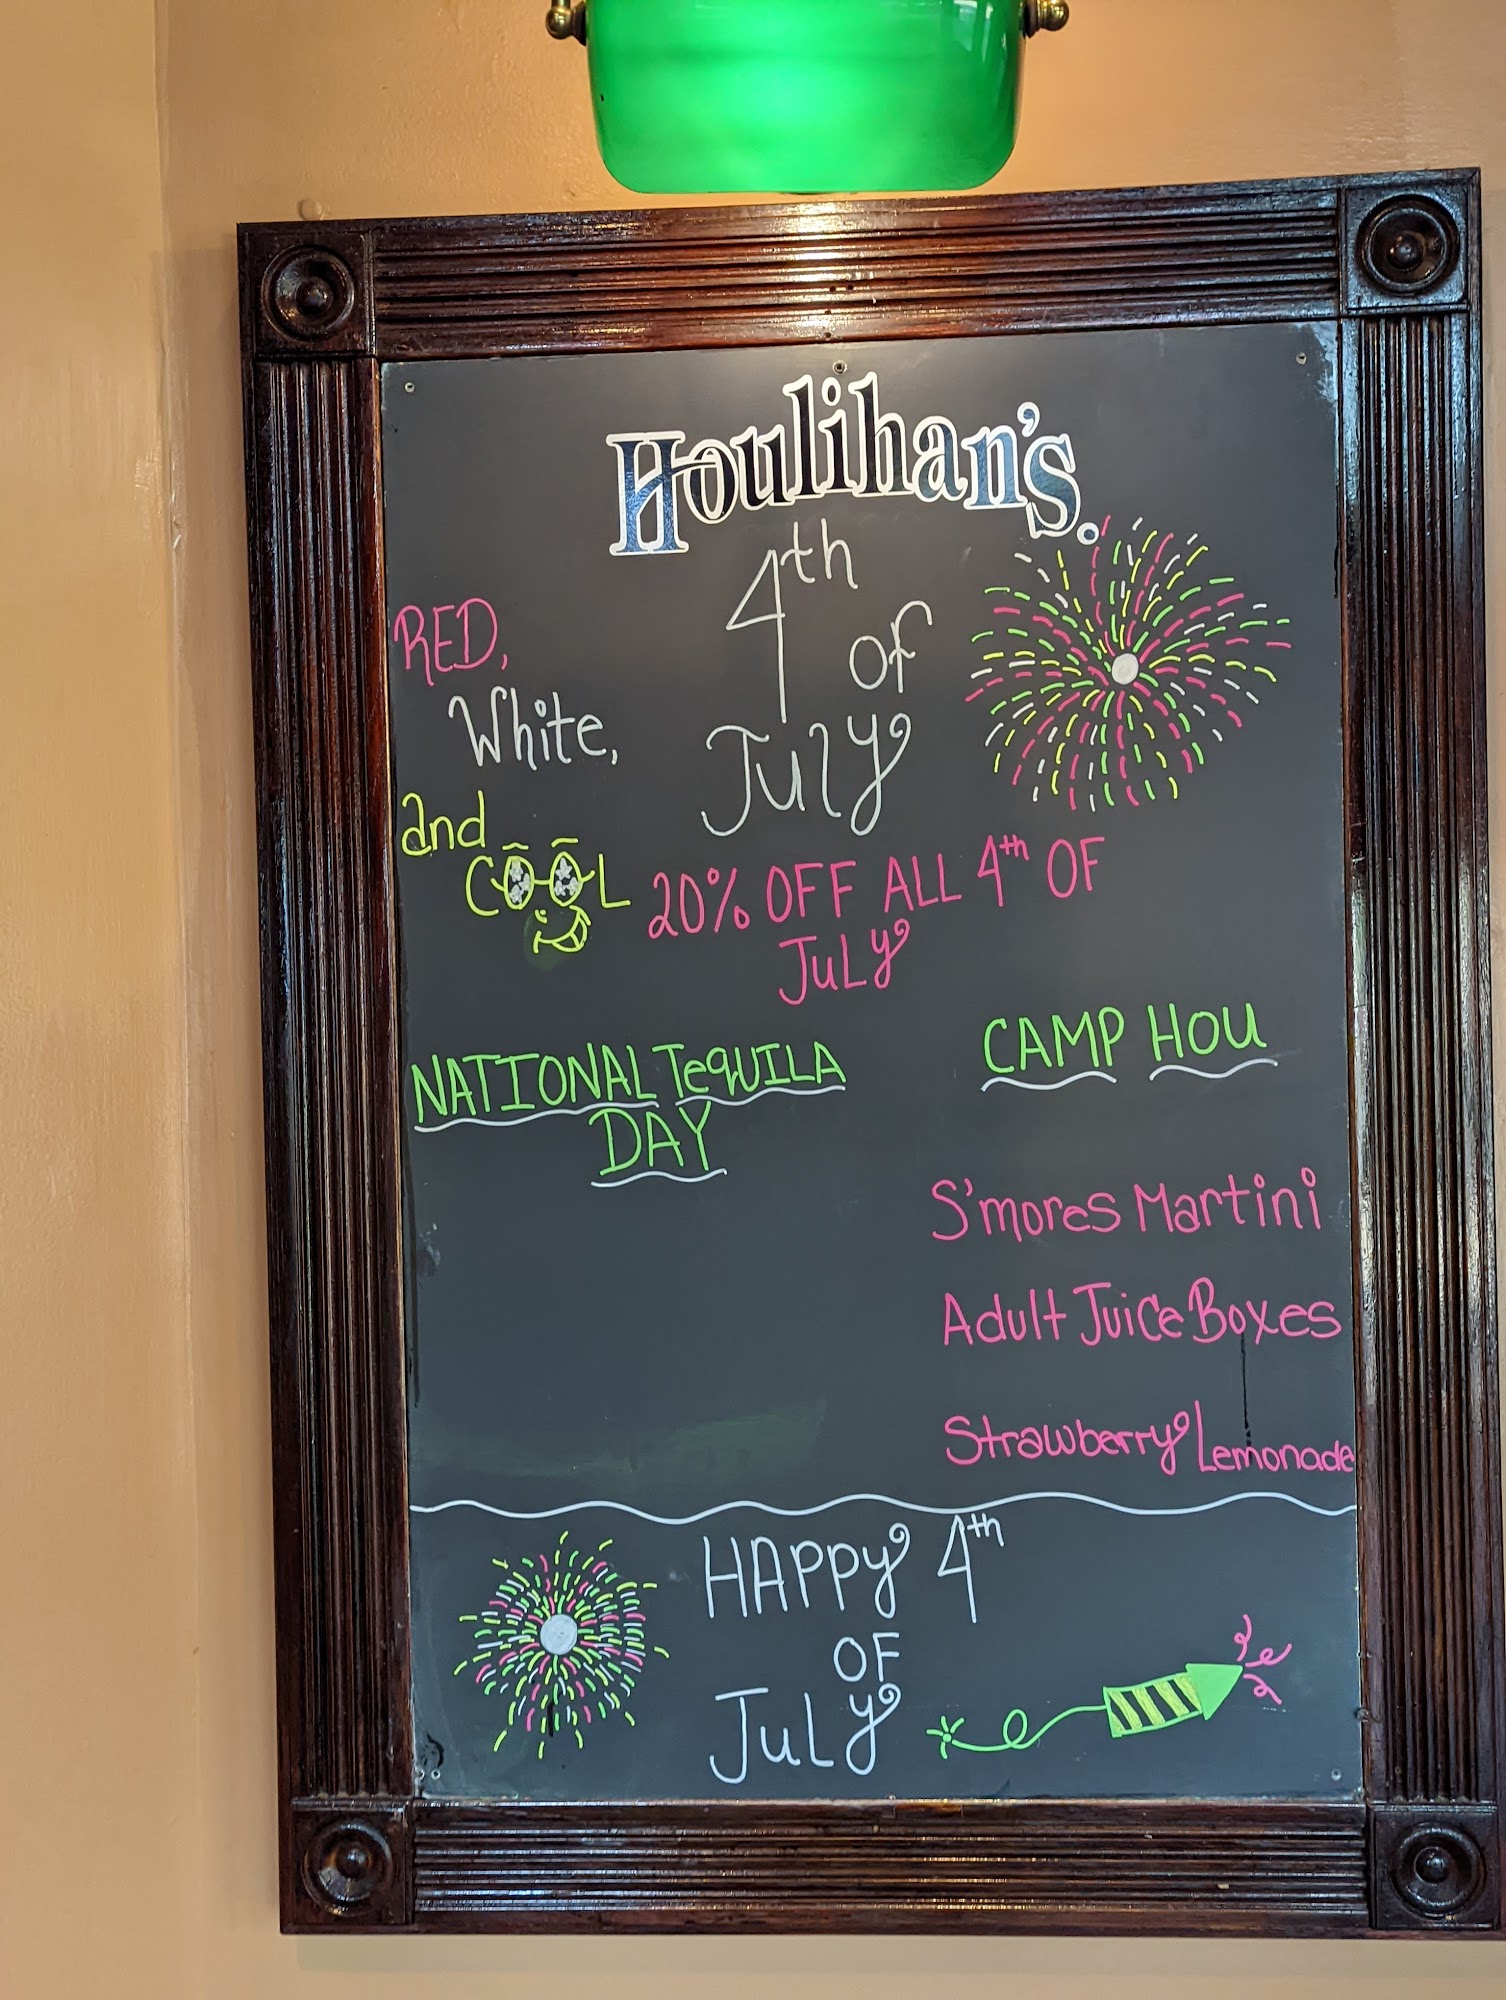 Houlihan's.
4th
of
July
RED,
White,
and
COOL
20% OFF ALL 4th OF
JuLy
NATIONAL TeqUILA
DAY
CAMP HOU
S'mores Martini
Adult Juice Boxes
Strawberry Lemonade
HAppy 4th
OF
JuLy